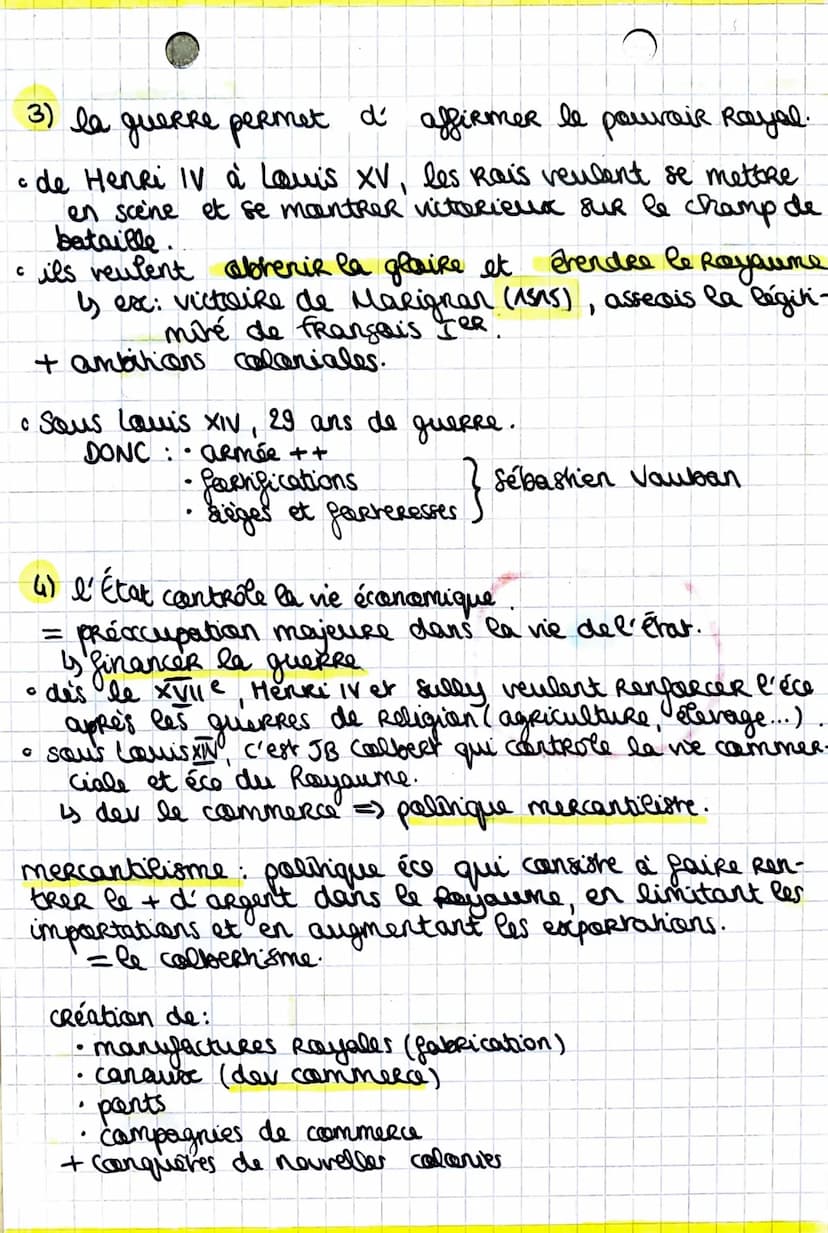 3) la guerre permet d' affirmer le pouvoir Royal.
• de Henri IV à Louis XV, les Rois veulent se mettre
en scène et se montrer victorieux sur le champ de
bataille.
• ils veulent obtenir la gloire et étendre le Royaume
↳ ex: victoire de Marignan (1515), asseois la légiti-
mité de français Ier.
+ ambitions coloniales.
• Sous Louis XIV, 29 ans de guerre.
DONC : • armée ++
• fortifications
• sièges et forteresses } Sébastien Vauban
4) l'État contrôle la vie économique.
= préoccupation majeure dans la vie de l'État.
↳ financer la guerre
• dès le XVIIe, Henri IV et Sully veulent renforcer l'éco
après les guerres de Religion (agriculture, élevage...).
• sous Louis XIV, c'est JB Colbert qui contrôle la vie commer-
ciale et éco du Royaume.
↳ dev le commerce => politique mercantiliste.
mercantilisme : politique éco qui consiste à faire ren-
trer le + d'argent dans le Royaume, en limitant les
importations et en augmentant les exportations.
= le colbertisme.
création de :
• manufactures Royales (fabrication)
• canaux (dev commerce)
• ponts
• compagnies de commerce
+ conquêtes de nouvelles colonies